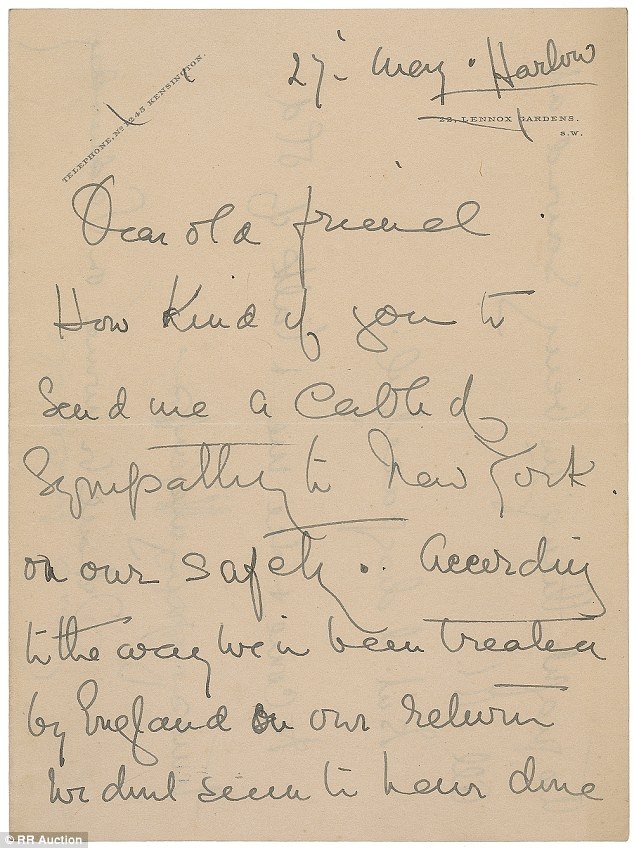 TELEPHONE, No 1245 KENSINGTON.
27th May. Harlow
22, LENNOX GARDENS.
S.W.
Dear old friend.
How kind of you to
send me a cable of
sympathy to New York.
on our safety.. According
to the way we've been treated
by England on our return
we didn't seem to have done
© RR Auction